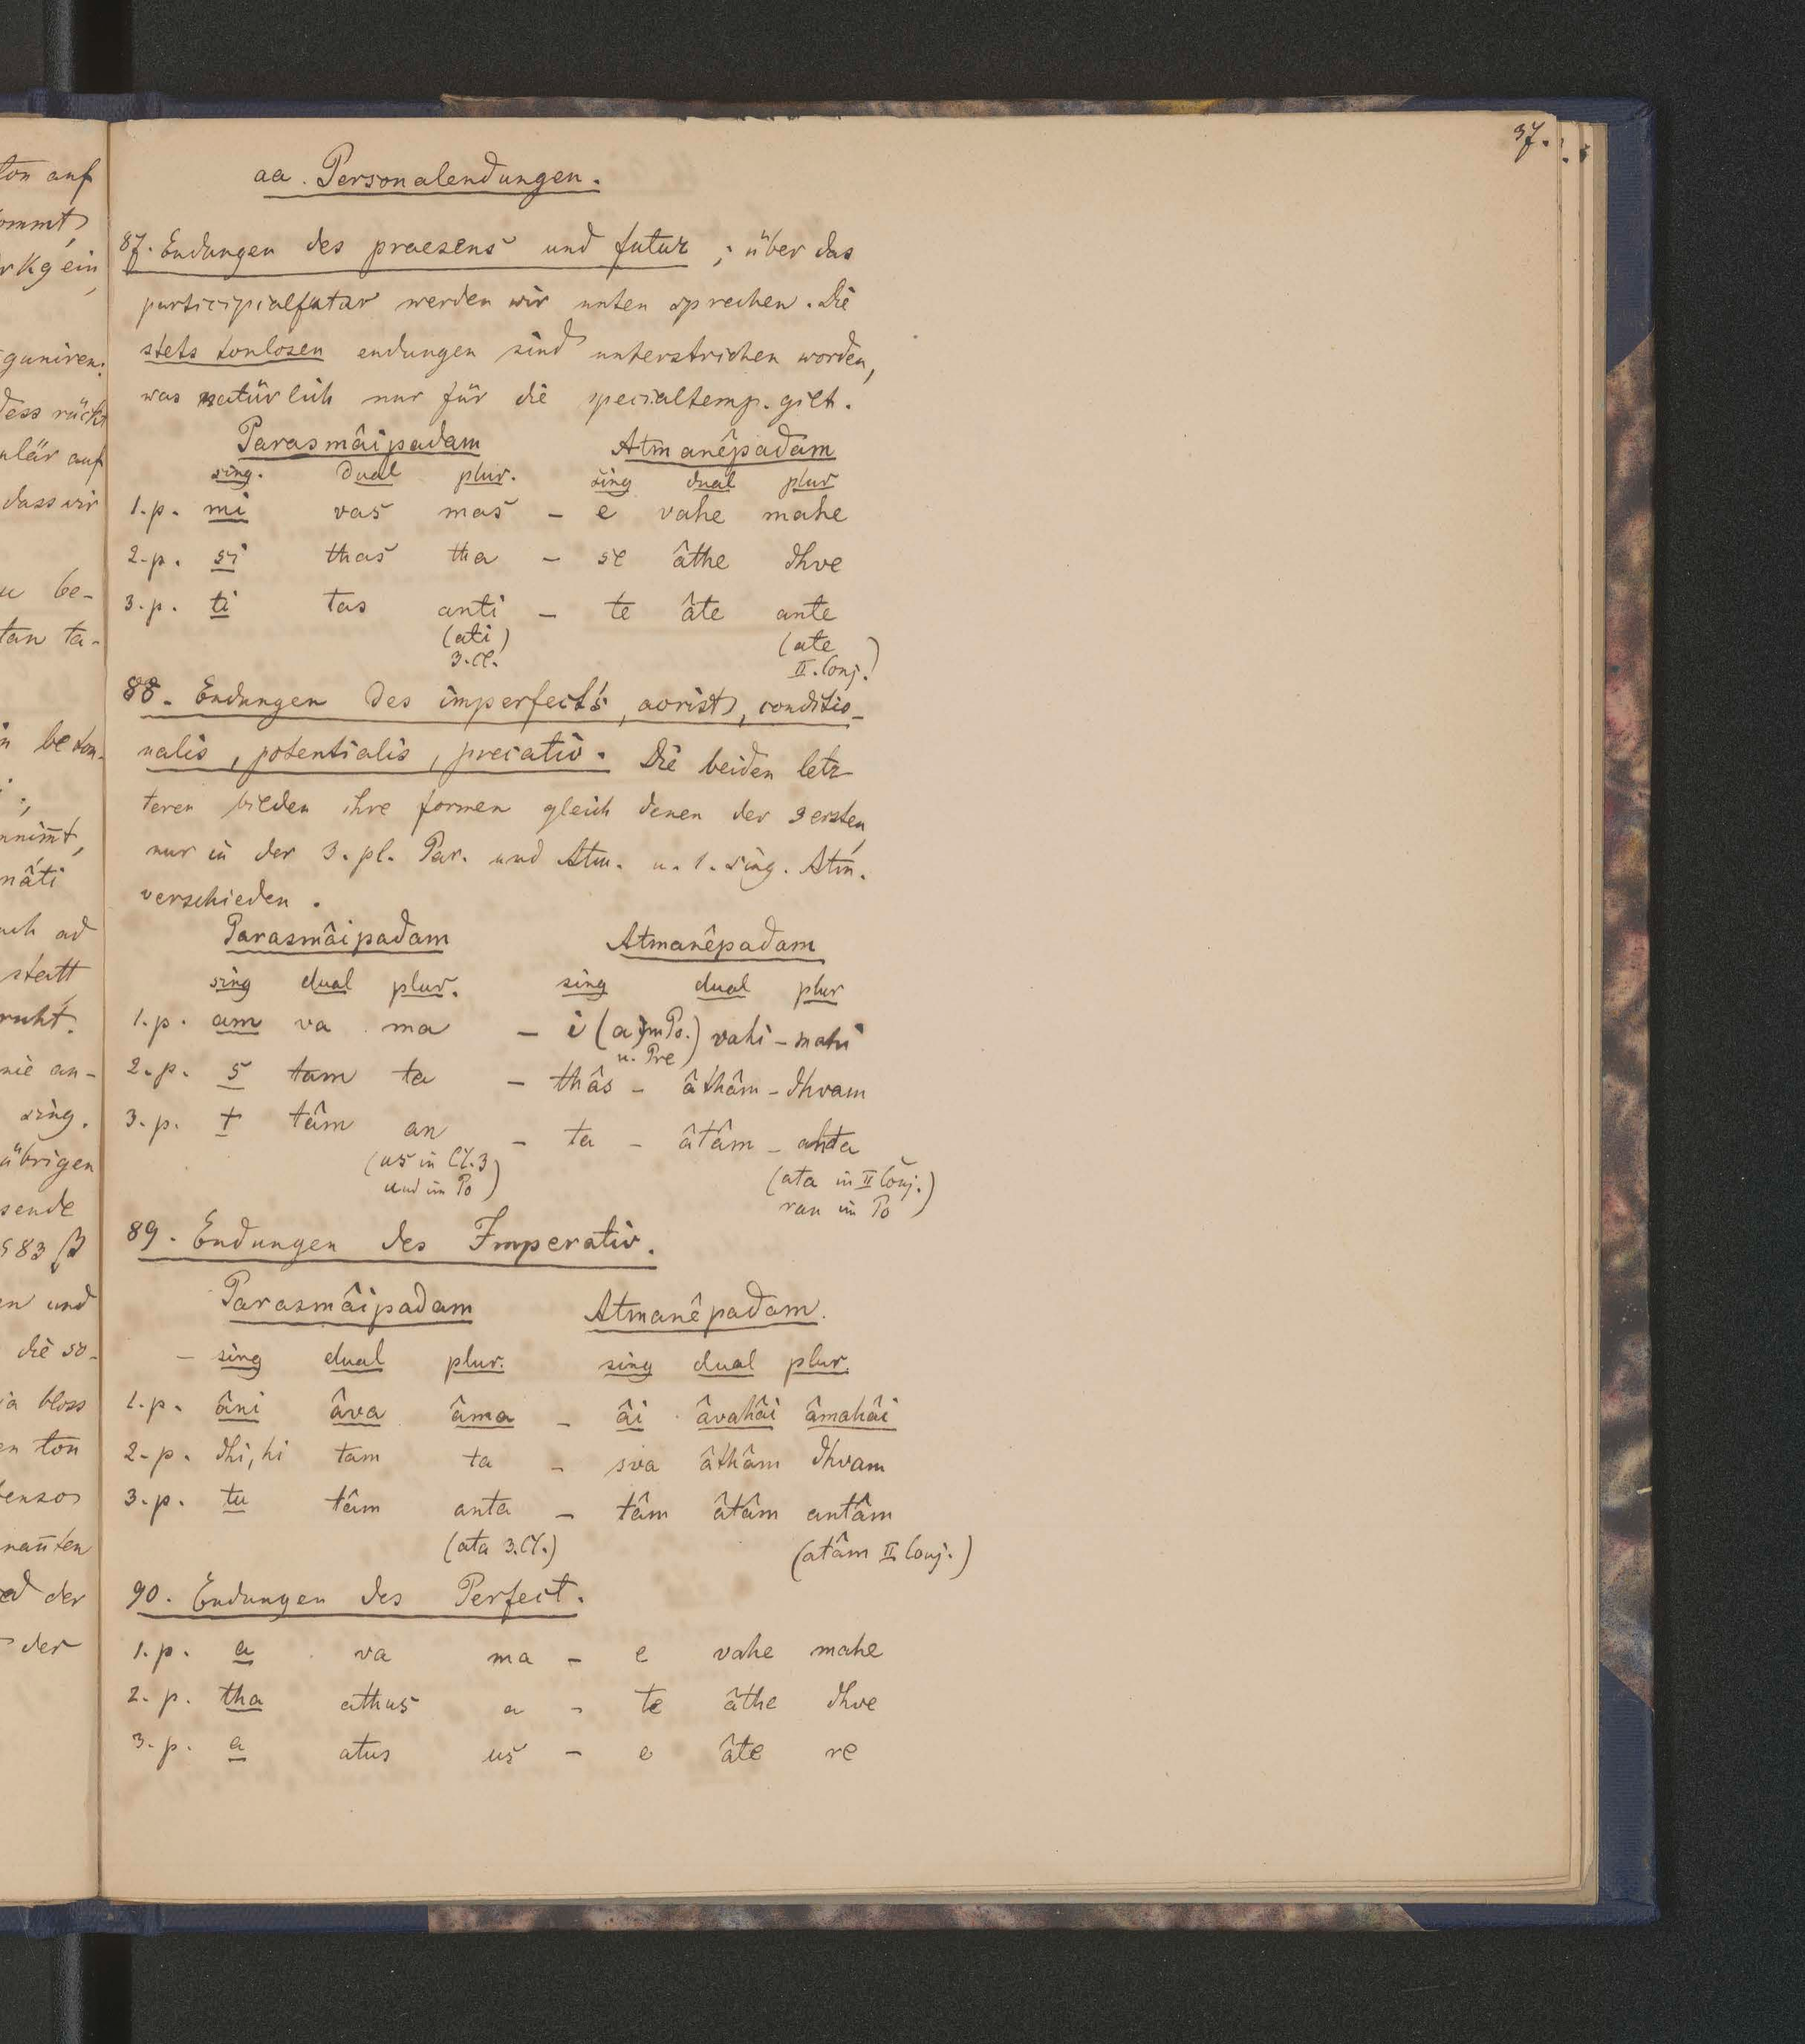 37.
aa. Personalendungen.
87. Endungen des praesens und futur; über das
participialfutur werden wir unten sprechen. Die
stets tonlosen endungen sind unterstrichen worden,
was natürlich nur für die specialtemp. gilt.
Parasmâipadam Atmanêpadam
sing. dual plur. sing dual plur
1.p. mi vas mas – e vahe mahe
2.p. si thas tha – se âthe dhve
3.p. ti tas anti – te âte ante
(ati) (ate
3.Cl. II.Conj.)
88. Endungen des imperfect's, aorist, conditio-
nalis, potentialis, precativ. Die beiden letz-
teren bilden ihre formen gleich denen der 3 ersten,
nur in der 3. pl. Par. und Atm. u. 1. sing. Atm.
verschieden.
Parasmâipadam Atmanêpadam
sing dual plur. sing dual plur
1.p. am va ma – i (a im Po. vahi – mahi
u. Pre)
2.p. s tam ta – thâs – âthâm – dhvam
3.p. t tâm an – ta – âtâm – anta
(us in Cl. 3 (ata in II Conj.)
und im Po) ran im Po)
89. Endungen des Imperativ.
Parasmâipadam Atmanêpadam.
– sing dual plur. sing dual plur.
1.p. âni âva âma – âi âvahâi âmahâi
2.p. dhi, hi tam ta – sva âthâm dhvam
3.p. tu tâm anta – tâm âtâm antâm
(ata 3.Cl.) (atâm II Conj.)
90. Endungen des Perfect.
1.p. a va ma – e vahe mahe
2.p. tha athus a – te âthe dhve
3.p. a atus us – e âte re
ton auf
kg ein,
guniren.
dass wir
be-
tan ta-
nâti
statt
sing.
übrigen
§ 83 β
und
die so-
bloss
ton
der
der